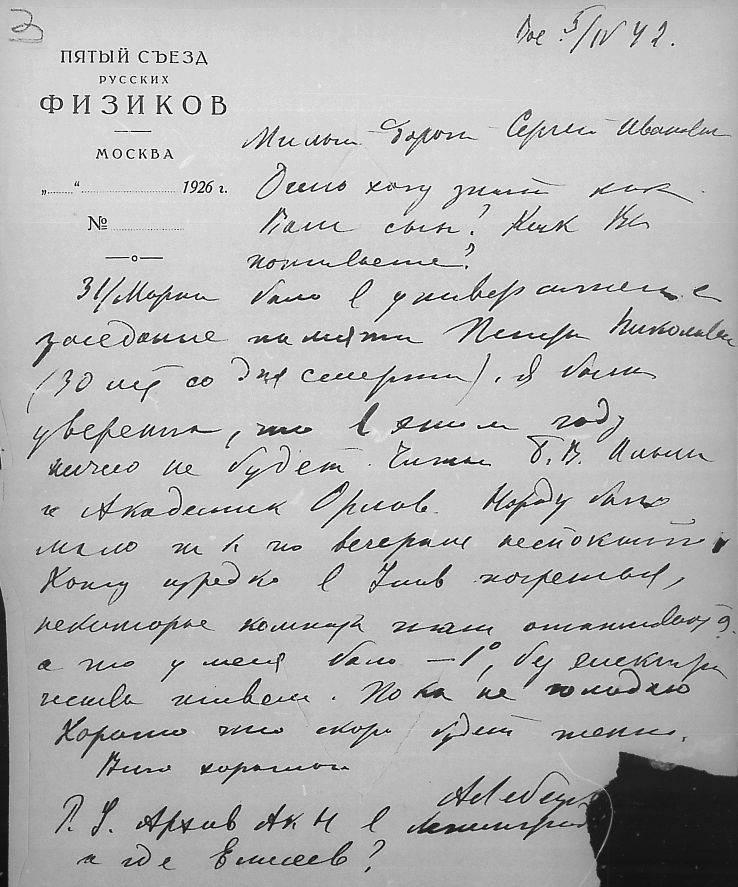 3
Вос. 5/IV 42.
ПЯТЫЙ СЪЕЗД
РУССКИХ
ФИЗИКОВ
МОСКВА
„......“ ........................ 1926 г.
№ ..................
Милый дорогой Сергей Иванович
Очень хочу знать как
Ваш сын? Как Вы
поживаете?
31/Марта было в университете
заседание памяти Петра Николаев
(30 лет со дня смерти). Я была
уверена, что в этом году
ничего не будет. Читали Б. В. Ильин
и Академик Орлов. Народу было
мало т к по вечерам неспокойно.
Хожу изредка в Унив погреться,
некоторые комнаты там отапливают,
а то у меня было –1°, без електри
чества живем. Пока не голодаю
Хорошо что скоро будет тепло.
Всего хорошего
АЛебедева
P. S. Архив Ак Н в Ленинграде
а где Елисеев?